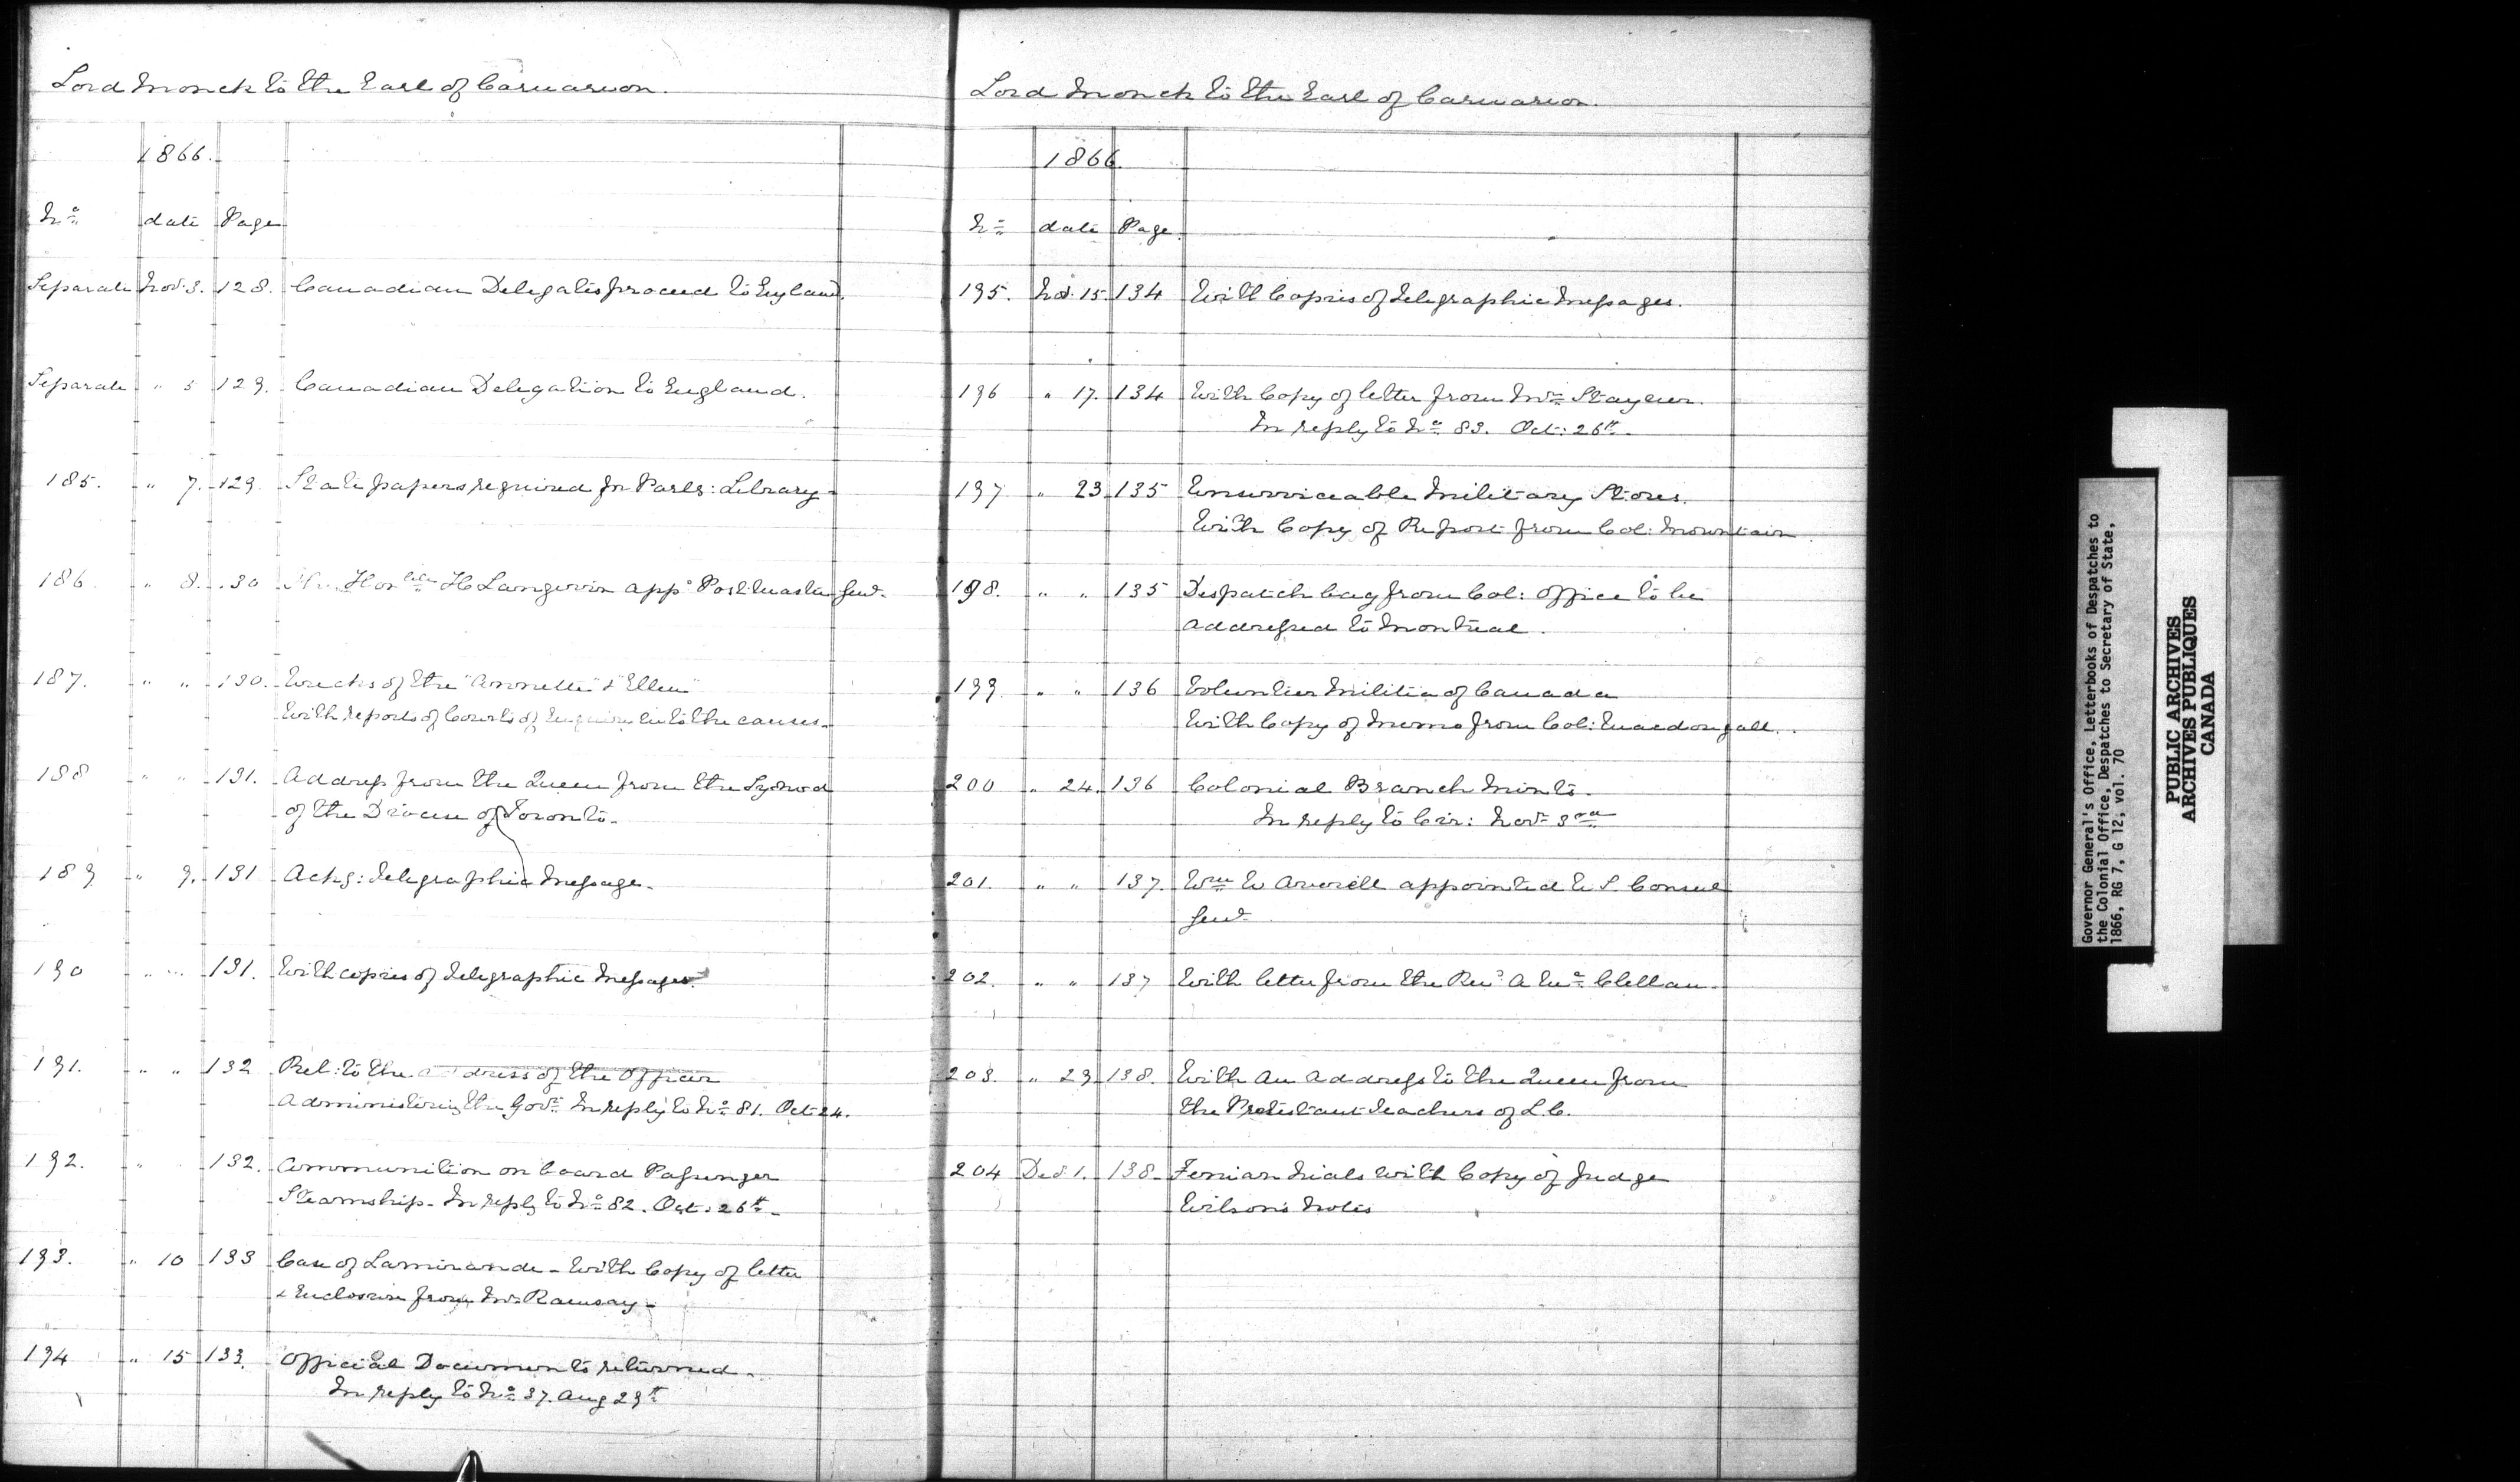 Lord Monck to the Earl of Carnarvon.
1866.
No date Page
Separate Nov. 3. 128. Canadian Delegates proceed to England.
Separate " 5 129. Canadian Delegation to England.
185. " 7. 129. State papers required for Parly: Library -
186. " 8. 130 The Honble H Langevin appd Postmaster Genl.
187. " " 130. Wrecks of the " " & "Ellen"
With reports of Courts of Enquiry into the causes -
188 " " 131. Address from the Queen from the Synod
of the Diocese of Toronto -
189 " 9. 131 Ackg: Telegraphic Message -
190 " " 131. With copies of Telegraphic Messages.
191. " " 132 Rel: to the address of the Officer
Administering the Govt. In reply to No 81. Oct 24.
192. " 132. Ammunition on board Passenger
Steamship - In reply to No 82. Oct: 26th -
193. " 10 133 Case of Lamirande - With Copy of letter
& Enclosure from Mr Ramsay -
194 " 15 133. Official Documents returned -
In reply to No 37. Aug 29th
Lord Monck to the Earl of Carnarvon.
1866.
No date Page.
195. Nov. 15 134 With Copies of Telegraphic Messages.
196 " 17. 134 With Copy of letter from Mr Stayner.
In reply to No 83. Oct: 26th -
197 " 23 135 Unserviceable Military Stores.
With Copy of Report from Col: Mountain.
198. " " 135 Despatch bag from Col: Office to be
addressed to Montreal.
199. " " 136 Volunteer Militia of Canada
With Copy of Memo from Col: Macdougall.
200 " 24. 136 Colonial Branch Mints -
In reply to Cir: Novr 3rd
201. " " 137. Wm W Averell appointed U S. Consul
Genl
202. " " 137 With letter from the Revd A Mc Clellan -
203. " 29 138. With an address to the Queen from
the Protestant Teachers of L.C.
204 Dec. 1. 138 - Fenian Trials with Copy of Judge
Wilson's Notes
Governor General's Office, Letterbooks of Despatches to
the Colonial Office, Despatches to Secretary of State,
1866, RG 7, G 12, vol. 70
PUBLIC ARCHIVES
ARCHIVES PUBLIQUES
CANADA